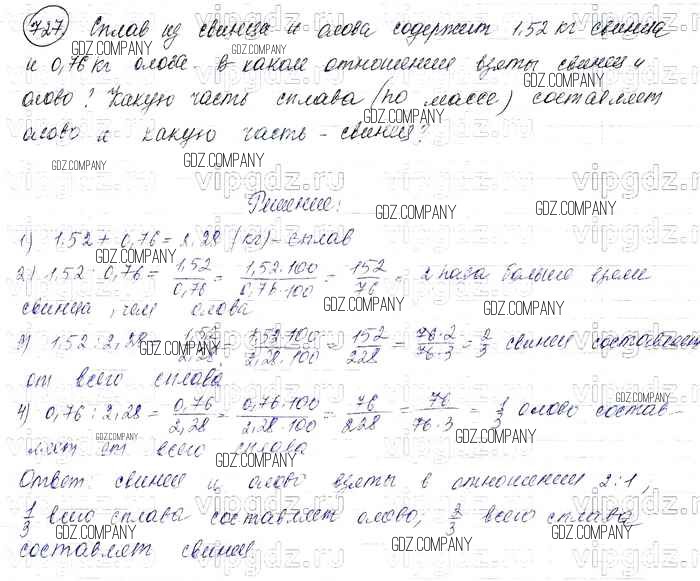 727) Сплав из свинца и олова содержит 1,52 кг свинца
и 0,76 кг олова. в каком отношении взяты свинец и
олово? Какую часть сплава (по массе) составляет
олово и какую часть - свинец?
Решение:
1) 1.52 + 0,76 = 2,28 (кг) - сплав
2) 1,52 : 0,76 = 1,52/0,76 = 1,52·100/0,76·100 = 152/76 = 2 раза больше взяли
свинца, чем олова
3) 1,52 : 2,28 = 1,52/2,28 = 1,52·100/2,28·100 = 152/228 = 76·2/76·3 = 2/3 свинец составляет
от всего сплава
4) 0,76 : 2,28 = 0,76/2,28 = 0,76·100/2,28·100 = 76/228 = 76/76·3 = 1/3 олово состав-
ляет от всего сплава
Ответ: свинец и олово взяты в отношении 2:1,
1/3 всего сплава составляет олово; 2/3 всего сплава
составляет свинец
GDZ.COMPANY
vipgdz.ru